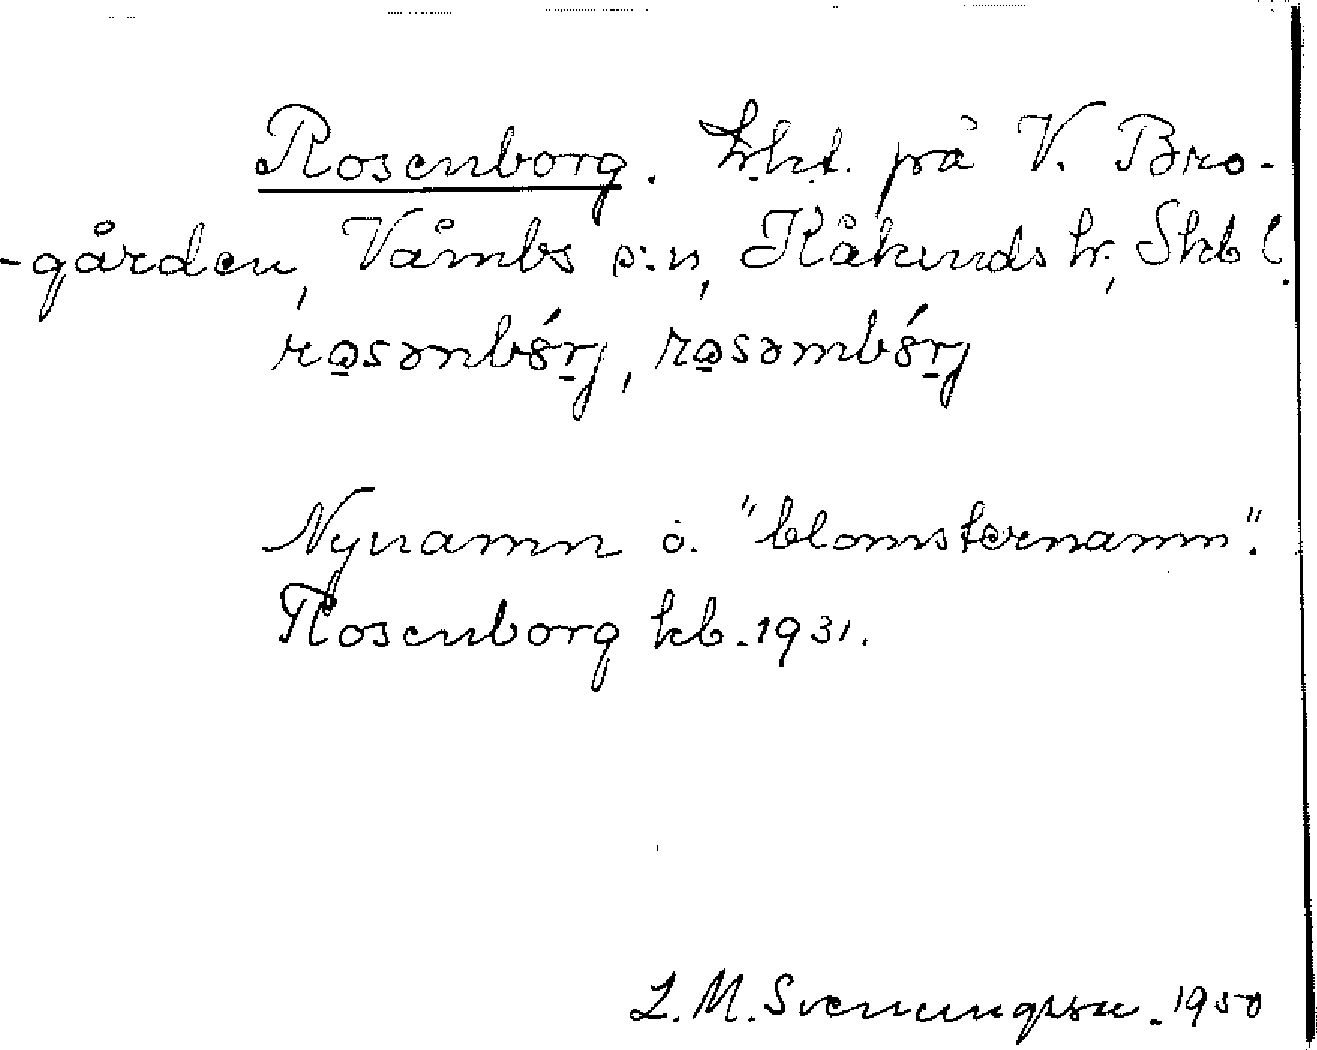 Rosenborg. Lht. på V. Bro-
-gården, Våmbs s:n, Kåkinds hr, Skb l.
rosənbórj, rosəmbórj
Nynamn o. "blomsternamn".
Rosenborg kb. 1931.
L. M. Svenungsson. 1950